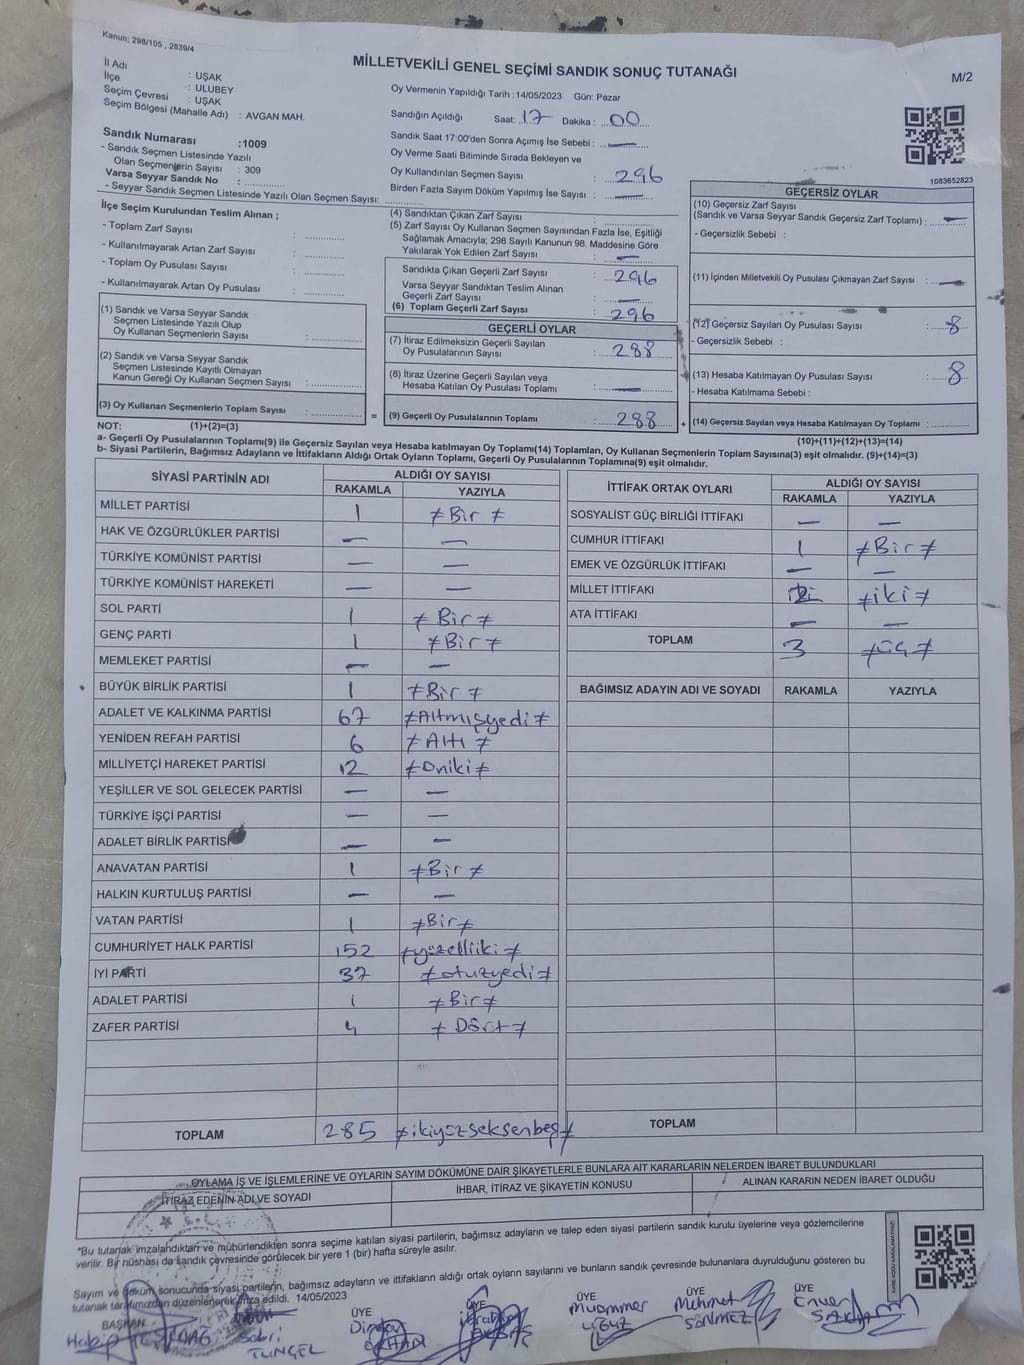 Kanun; 298/105 , 2839/4
MİLLETVEKİLİ GENEL SEÇİMİ SANDIK SONUÇ TUTANAĞI
M/2
İl Adı : UŞAK
İlçe : ULUBEY
Seçim Çevresi : UŞAK
Seçim Bölgesi (Mahalle Adı) : AVGAN MAH.
Sandık Numarası :1009
- Sandık Seçmen Listesinde Yazılı
Olan Seçmenlerin Sayısı : 309
Varsa Seyyar Sandık No : ..............
- Seyyar Sandık Seçmen Listesinde Yazılı Olan Seçmen Sayısı: ..............
Oy Vermenin Yapıldığı Tarih :14/05/2023 Gün: Pazar
Sandığın Açıldığı Saat: 17 Dakika : 00
Sandık Saat 17:00'den Sonra Açımış İse Sebebi : —
Oy Verme Saati Bitiminde Sırada Bekleyen ve
Oy Kullandırılan Seçmen Sayısı : 296
Birden Fazla Sayım Döküm Yapılmış İse Sayısı : —
1083652823
İlçe Seçim Kurulundan Teslim Alınan ;
- Toplam Zarf Sayısı : ..............
- Kullanılmayarak Artan Zarf Sayısı : ..............
- Toplam Oy Pusulası Sayısı : ..............
- Kullanılmayarak Artan Oy Pusulası : ..............
(1) Sandık ve Varsa Seyyar Sandık
Seçmen Listesinde Yazılı Olup
Oy Kullanan Seçmenlerin Sayısı : ..............
(2) Sandık ve Varsa Seyyar Sandık
Seçmen Listesinde Kayıtlı Olmayan
Kanun Gereği Oy Kullanan Seçmen Sayısı : ..............
(3) Oy Kullanan Seçmenlerin Toplam Sayısı : ..............
(1)+(2)=(3)
(4) Sandıktan Çıkan Zarf Sayısı : ..............
(5) Zarf Sayısı Oy Kullanan Seçmen Sayısından Fazla İse, Eşitliği
Sağlamak Amacıyla; 298 Sayılı Kanunun 98. Maddesine Göre
Yakılarak Yok Edilen Zarf Sayısı : —
Sandıkta Çıkan Geçerli Zarf Sayısı : 296
Varsa Seyyar Sandıktan Teslim Alınan
Geçerli Zarf Sayısı : —
(6) Toplam Geçerli Zarf Sayısı : 296
GEÇERLİ OYLAR
(7) İtiraz Edilmeksizin Geçerli Sayılan
Oy Pusulalarının Sayısı : 288
(8) İtiraz Üzerine Geçerli Sayılan veya
Hesaba Katılan Oy Pusulası Toplamı : —
= (9) Geçerli Oy Pusulalarının Toplamı : 288 +
GEÇERSİZ OYLAR
(10) Geçersiz Zarf Sayısı
(Sandık ve Varsa Seyyar Sandık Geçersiz Zarf Toplamı) : —
- Geçersizlik Sebebi :
(11) İçinden Milletvekili Oy Pusulası Çıkmayan Zarf Sayısı : —
(12) Geçersiz Sayılan Oy Pusulası Sayısı : 8
- Geçersizlik Sebebi :
(13) Hesaba Katılmayan Oy Pusulası Sayısı : 8
- Hesaba Katılmama Sebebi :
(14) Geçersiz Sayılan veya Hesaba Katılmayan Oy Toplamı : ..............
(10)+(11)+(12)+(13)=(14)
NOT:
a- Geçerli Oy Pusulalarının Toplamı(9) ile Geçersiz Sayılan veya Hesaba katılmayan Oy Toplamı(14) Toplamları, Oy Kullanan Seçmenlerin Toplam Sayısına(3) eşit olmalıdır. (9)+(14)=(3)
b- Siyasi Partilerin, Bağımsız Adayların ve İttifakların Aldığı Ortak Oyların Toplamı, Geçerli Oy Pusulalarının Toplamına(9) eşit olmalıdır.
SİYASİ PARTİNİN ADI ALDIĞI OY SAYISI
RAKAMLA YAZIYLA
MİLLET PARTİSİ 1 ≠ Bir ≠
HAK VE ÖZGÜRLÜKLER PARTİSİ — —
TÜRKİYE KOMÜNİST PARTİSİ — —
TÜRKİYE KOMÜNİST HAREKETİ — —
SOL PARTİ 1 ≠ Bir ≠
GENÇ PARTİ 1 ≠ Bir ≠
MEMLEKET PARTİSİ — —
BÜYÜK BİRLİK PARTİSİ 1 ≠ Bir ≠
ADALET VE KALKINMA PARTİSİ 67 ≠Altmışyedi ≠
YENİDEN REFAH PARTİSİ 6 ≠ Altı ≠
MİLLİYETÇİ HAREKET PARTİSİ 12 ≠Oniki≠
YEŞİLLER VE SOL GELECEK PARTİSİ — —
TÜRKİYE İŞÇİ PARTİSİ — —
ADALET BİRLİK PARTİSİ — —
ANAVATAN PARTİSİ 1 ≠Bir ≠
HALKIN KURTULUŞ PARTİSİ — —
VATAN PARTİSİ 1 ≠Bir≠
CUMHURİYET HALK PARTİSİ 152 ≠yüzelliiki ≠
İYİ PARTİ 37 ≠otuzyedi≠
ADALET PARTİSİ 1 ≠ Bir≠
ZAFER PARTİSİ 4 ≠ Dört ≠
TOPLAM 285 ≠ikiyüzseksenbeş≠
İTTİFAK ORTAK OYLARI ALDIĞI OY SAYISI
RAKAMLA YAZIYLA
SOSYALİST GÜÇ BİRLİĞİ İTTİFAKI — —
CUMHUR İTTİFAKI 1 ≠Bir≠
EMEK VE ÖZGÜRLÜK İTTİFAKI — —
MİLLET İTTİFAKI ≠iki≠
ATA İTTİFAKI — —
TOPLAM 3 ≠üç≠
BAĞIMSIZ ADAYIN ADI VE SOYADI RAKAMLA YAZIYLA
TOPLAM
OYLAMA İŞ VE İŞLEMLERİNE VE OYLARIN SAYIM DÖKÜMÜNE DAİR ŞİKAYETLERLE BUNLARA AİT KARARLARIN NELERDEN İBARET BULUNDUKLARI
İTİRAZ EDENİN ADI VE SOYADI İHBAR, İTİRAZ VE ŞİKAYETİN KONUSU ALINAN KARARIN NEDEN İBARET OLDUĞU
*Bu tutanak imzalandıktan ve mühürlendikten sonra seçime katılan siyasi partilerin, bağımsız adayların ve talep eden siyasi partilerin sandık kurulu üyelerine veya gözlemcilerine
verilir. Bir nüshası da sandık çevresinde görülecek bir yere 1 (bir) hafta süreyle asılır.
Sayım ve döküm sonucunda siyasi partilerin, bağımsız adayların ve ittifakların aldığı ortak oyların sayılarını ve bunların sandık çevresinde bulunanlara duyrulduğunu gösteren bu
tutanak tarafımızdan düzenlenerek imza edildi. 14/05/2023
BAŞKAN ÜYE ÜYE ÜYE ÜYE
Habip Sabri TUNGEL
Muammer Mehmet SÖNMEZ Enver